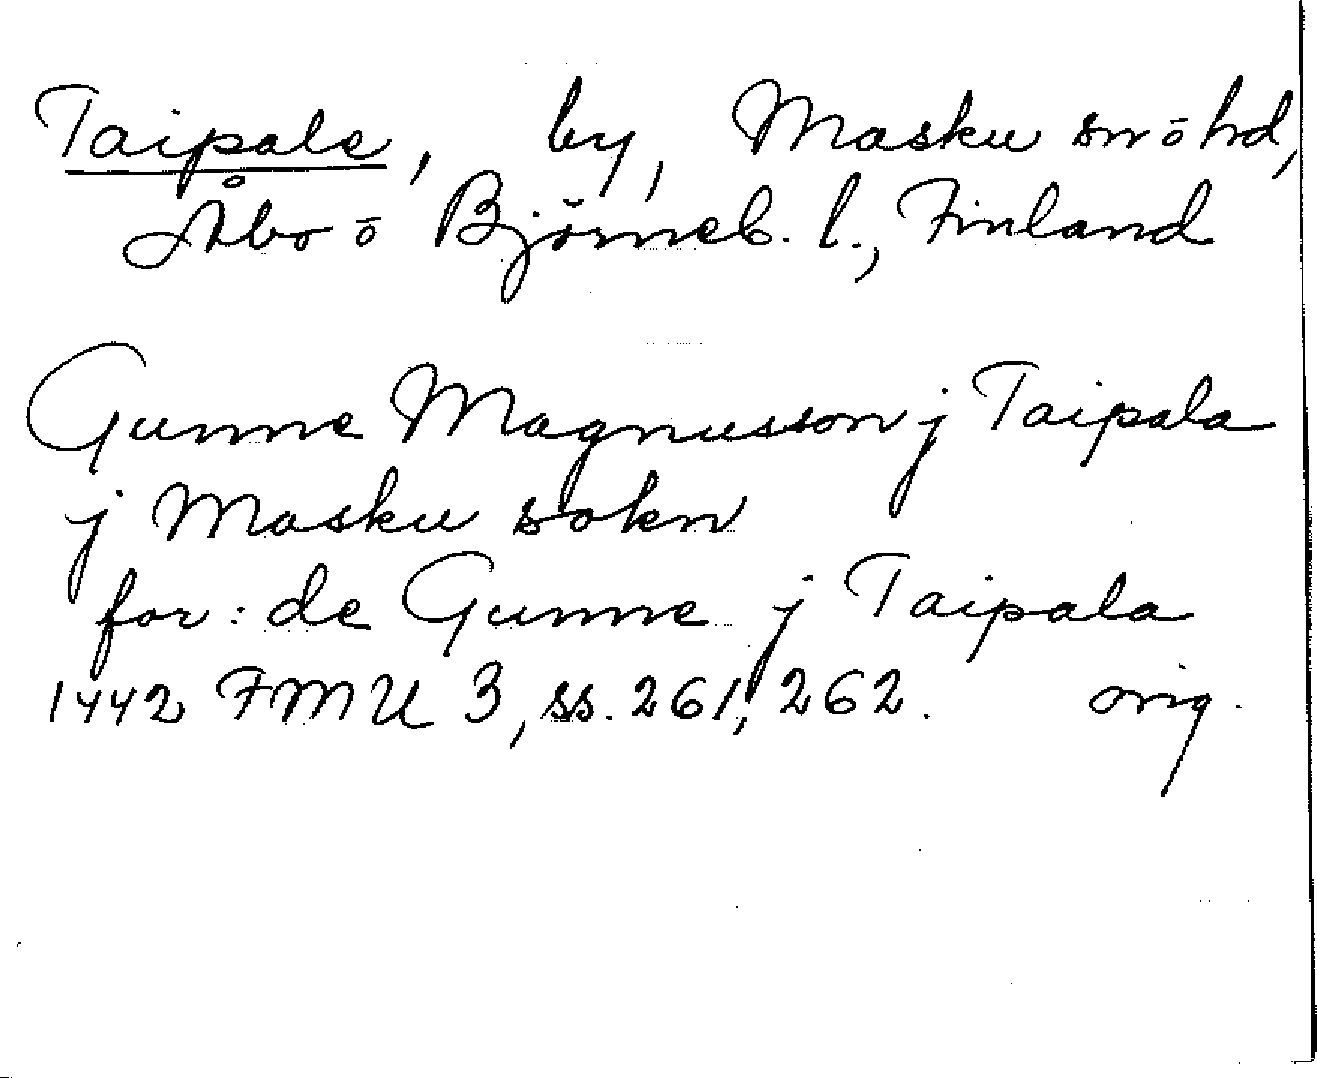 Taipale, by, Masku sn ō hd,
Åbo ō Björneb. l., Finland
Gunne Magnusson j Taipala
j Masku sokn
for: de Gunne j Taipala
1442 FMU 3, ss. 261, 262. orig.